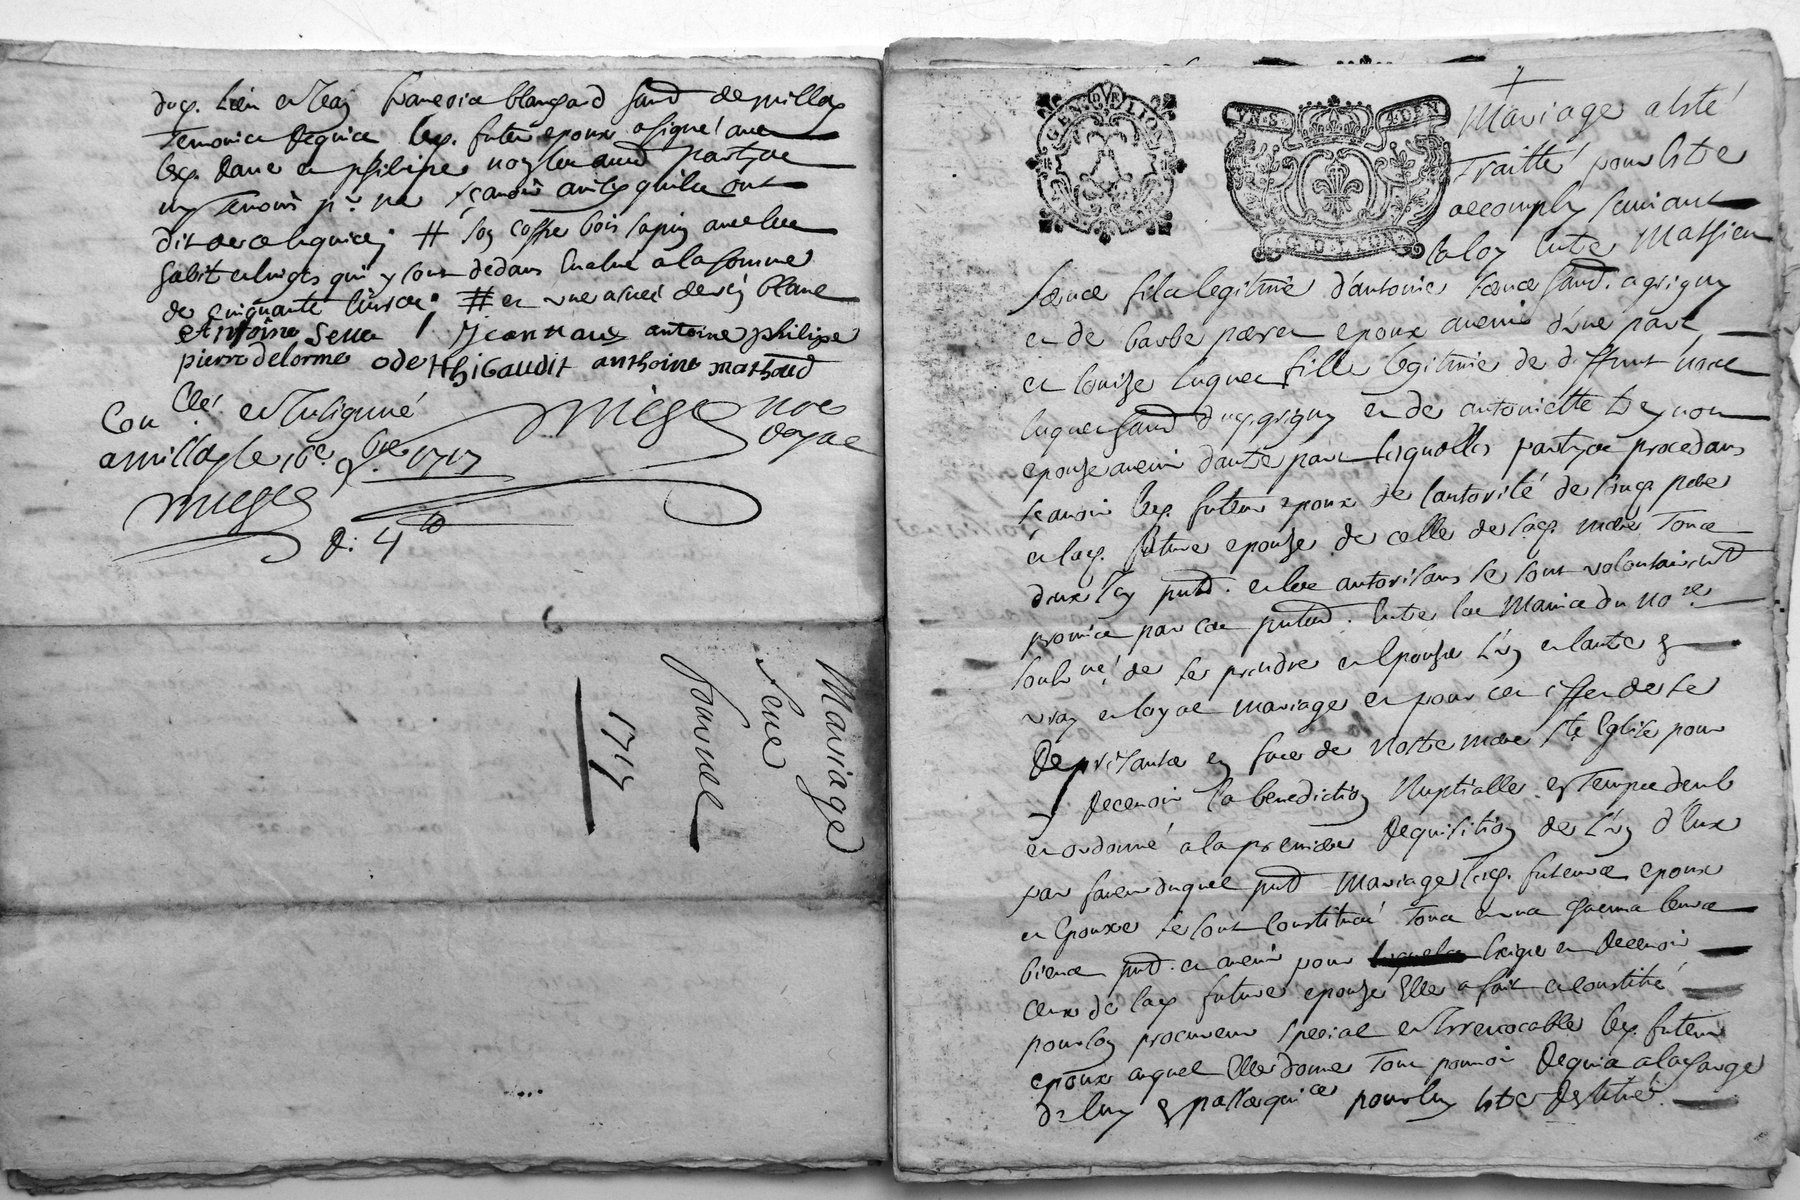 dud. lieu et Jean françois blanchard habt. de millery
temoins requis led. futur epoux a signé avec
led. Dave et philipe non les autres partyes
ny temoins pr. ne sçavoir
dit de ce enquis # son coffre bois sapin avec les
habits et linges qui y sont dedans evalué a la somme
de cinquante livres # et une asnée de vin blanc
Antoine Seve Jean antoine philipe
pierre delorme odet thibaudit anthoine mathaud
Con.llé et Insigniné
a millery le 16e 9bre 1717
miege nore royal
miege
R. 4 lt
Mariage
Seve
fournel
1717
GEN. DE LION
VN. S. 4. DEN.
G. D. LYON
Mariage a esté
Traitté pour estre
accomply suivant
la loy entre Mathieu
Seve fils legitime d'antoine Seve habt. a grigny
et de barbe epoux avenir d'une part
et louise luquet fille legitime de deffunt
luquet habt. dud. grigny et de antoinette
epouse avenir d'autre part lesquelles partyes procedans
sçavoir led. futur epoux de l'autorité de sond. pere
et lad. future epouse de celle de sad. mere Tous
deux icy pnts. et les autorisans se sont volontairemt
promis par ces pntes. entre les Mains du nore
soubné de se prendre et epouser l'un et l'autre en
vray et loyal mariage et pour cet effet de se
presenter en face de Nostre mere Ste Eglise pour
y Recevoir la benediction Nuptialle
et ordonné a la premiere Requisition de l'un d'eux
en faveur duquel pnt Mariage lesd. futurs epoux
et epouse se sont constitués Tous et un chacuns leurs
biens pnts. et avenir pour exiger et Recevoir
ceux de lad. future epouse Elle a fait et constitué
pour son procureur special et Irrevocable led. futur
epoux auquel Elle donne Tout pouvoir Requis a la charge
de luy pour luy estre Restitué